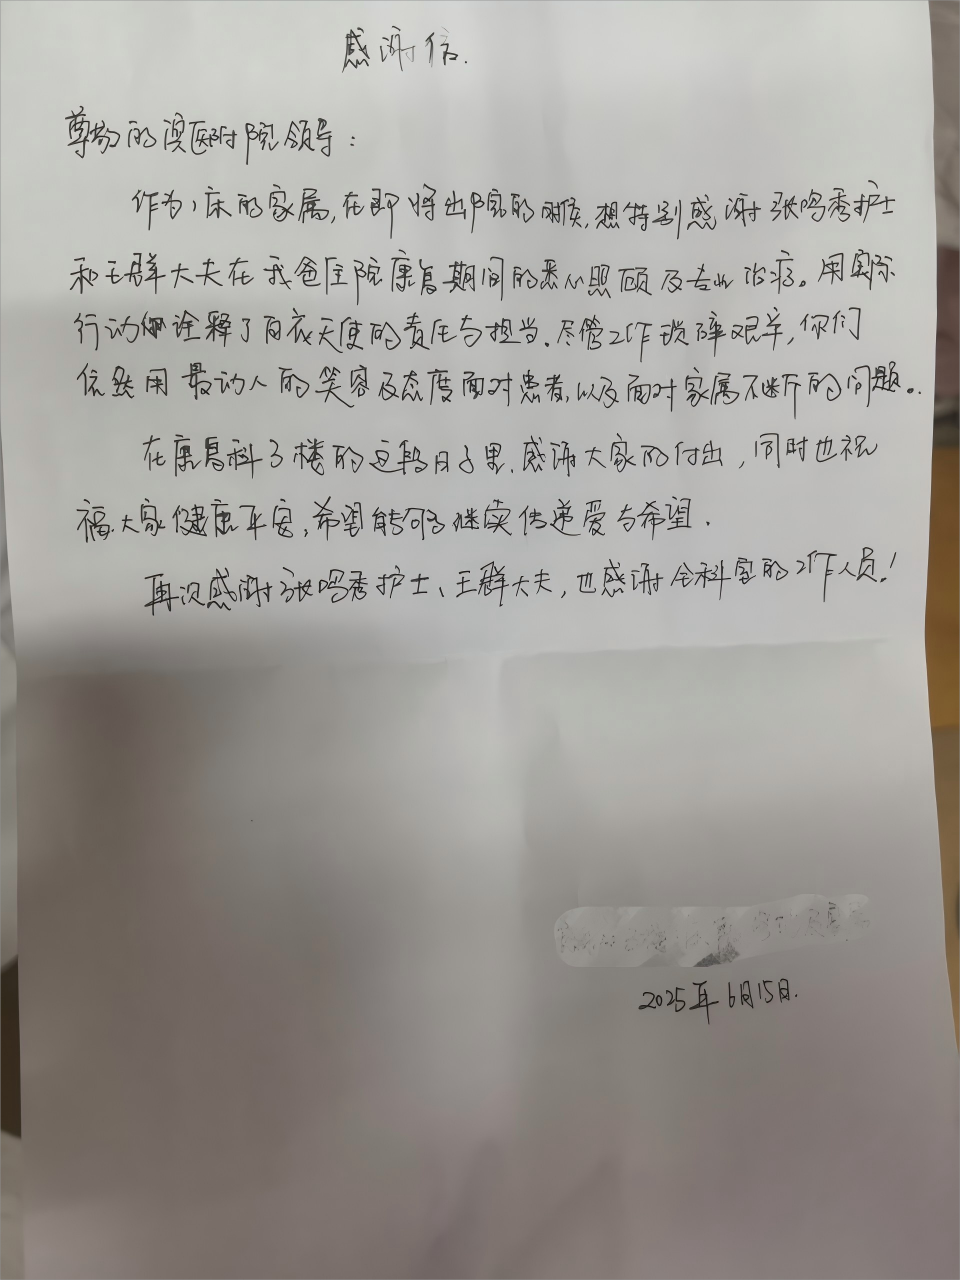 感谢信.
尊敬的滨医附院领导：
作为1床的家属,在即将出院的时候,想特别感谢张鸣秀护士
和王群大夫在我爸住院康复期间的悉心照顾及专业治疗。用实际
行动诠释了白衣天使的责任与担当.尽管工作琐碎艰辛,你们
依然用最动人的笑容及态度面对患者,以及面对家属不断的问题。
在康复科3楼的这段日子里,感谢大家的付出,同时也祝
福大家健康平安,希望能继续传递爱与希望.
再次感谢张鸣秀护士、王群大夫,也感谢全科室的工作人员!
2025年6月15日.